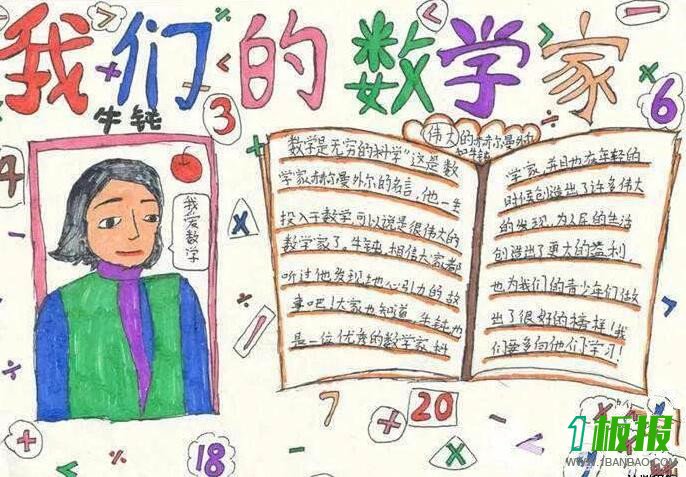 我们的数学家
牛钝
3
6
4
我爱数学
伟大的赫尔曼外尔
和牛钝
数学是无穷的科学"这是数
学家赫尔曼外尔的名言，他一生
投入于数学可以说是很伟大的
数学家了。牛钝，相信大家都
听过他发现地心引力的故
事吧！大家也知道，牛钝也
是一位优秀的数学家、科
学家，并且也在年轻的
时候创造出了许多伟大
的发现，为人民的生活
创造出了更大的益利，
也为我们的青少年们做
出了很好的榜样！我
们要多向他们学习！
7
20
18
1板报
WWW.1BANBAO.COM